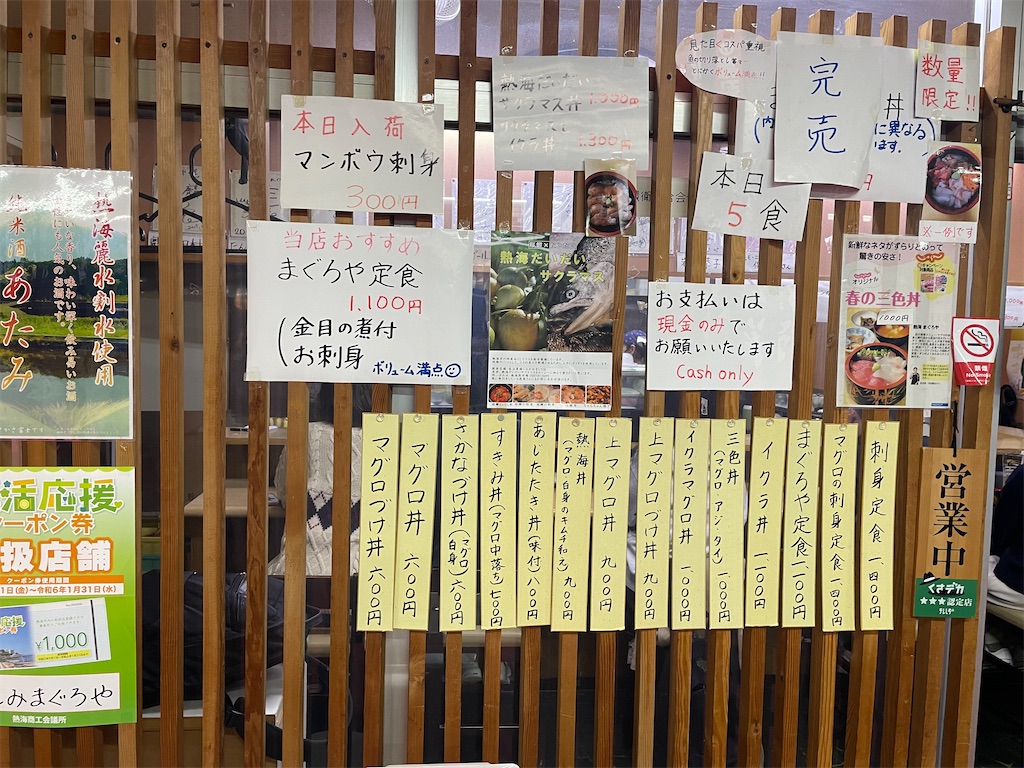 熱海麗水割水使用
純米酒 あたみ
本日入荷
マンボウ刺身
300円
熱海だいだい
サクラマス丼
イクラ丼 1.300円
見た目よりコスパ重視
完売
数量
限定!!
丼
に異なる
ます。
本日
5食
※一例です
当店おすすめ
まぐろや定食
1.100円
金目の煮付
お刺身
ボリューム満点
熱海だいだい
サクラマス
お支払いは
現金のみで
お願いいたします
Cash only
新鮮なネタがずらりとのって
驚きの安さ!
オリジナル
春の三色丼
1000円
熱海 まぐろや
禁煙
No Smoking
刺身定食 一、四〇〇円
マグロの刺身定食 一、四〇〇円
まぐろや定食 一、一〇〇円
イクラ丼 一、一〇〇円
三色丼
(マグロ アジ タイ) 一、〇〇〇円
イクラマグロ丼 一、〇〇〇円
上マグロづけ丼 九〇〇円
上マグロ丼 九〇〇円
熱海丼
(マグロ白身のキムチ和え) 九〇〇円
あじたたき丼(味付) 八〇〇円
すきみ丼(マグロ中落ち) 七〇〇円
さかなづけ丼(マグロ 白身) 六〇〇円
マグロ丼 六〇〇円
マグロづけ丼 六〇〇円
営業中
くさデカ
★★★認定店
テレしず
活応援
クーポン券
扱店舗
クーポン券使用期間
1日(金)〜令和6年1月31日(水)
¥1,000
みまぐろや
熱海商工会議所